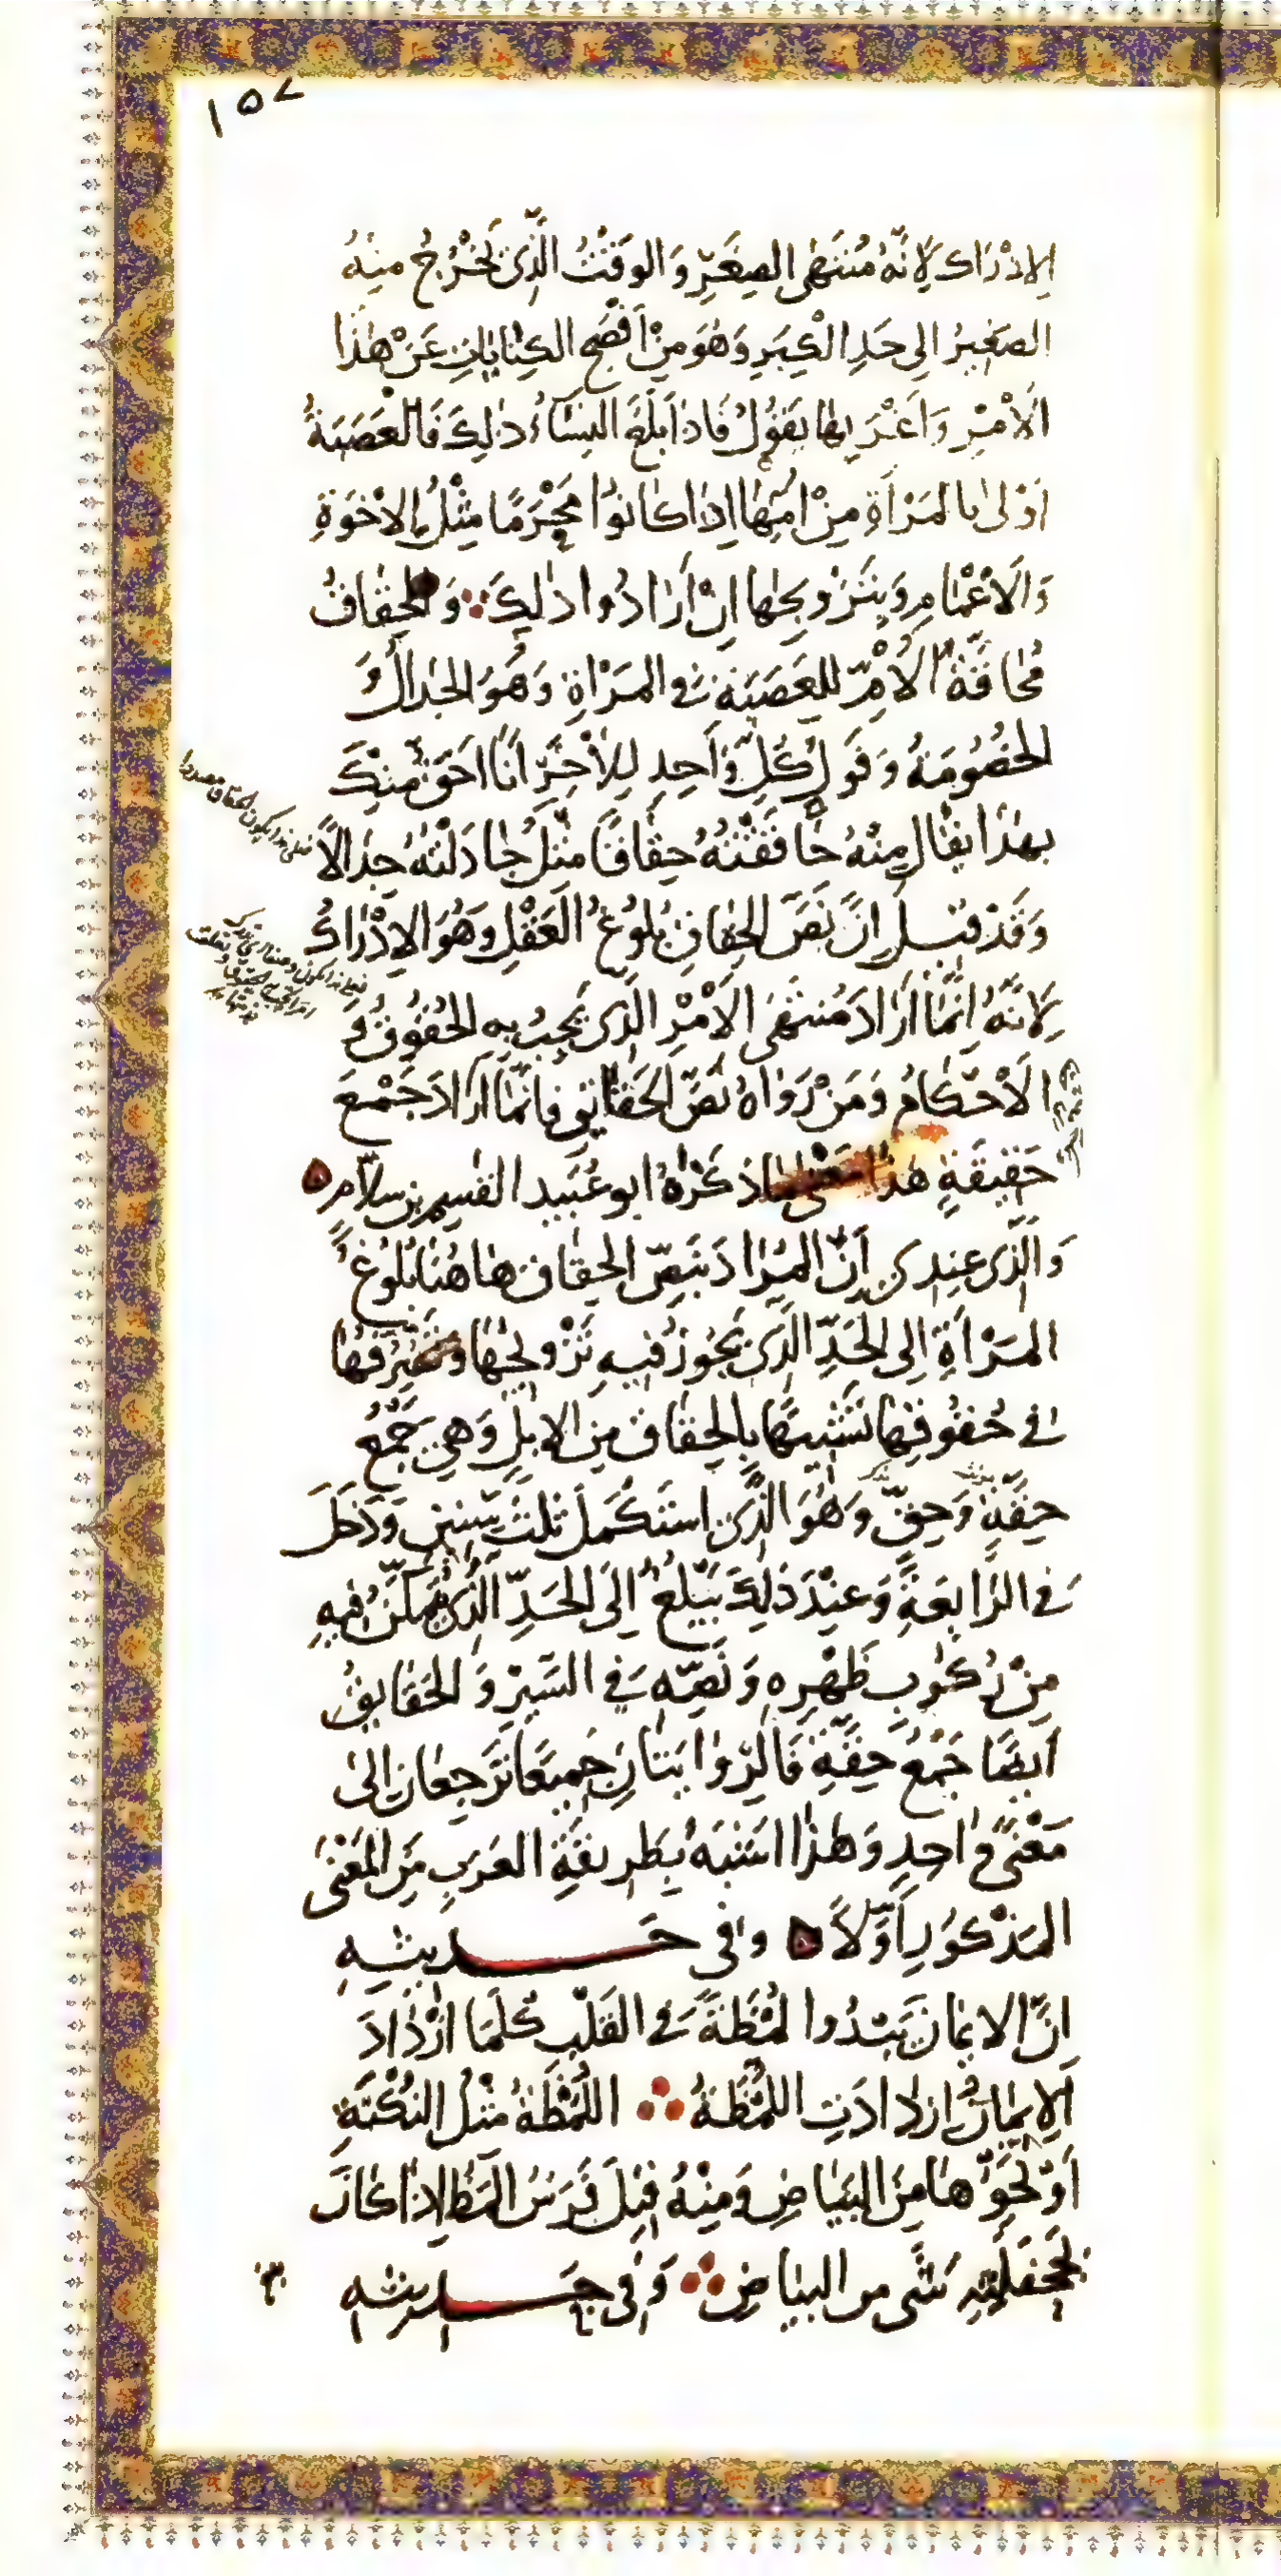 ١٥٧
الإدْرَاك لِأنَّهُ مُنْتَهَى الصِغَرِ وَالوَقْتُ الَّذِي يَخْرُجُ مِنْهُ
الصَغِيرُ اِلى حَدِ الْكِبَرِ وَهُوَ مِنْ اَفْصَحِ الكِنَايَاتِ عَنْ هٰذَا
الْاَمْرِ وَاَغْرَبِها يَقُولُ فَاذا بَلَغَ النِسَاءُ ذٰلِكَ فَالْعَصَبَةُ
اَوْلىٰ بالمَرْاَةِ مِنْ اُمِّهَا اِذَا كانُوا مَحْرَمًا مِثْلُ الاِخْوَةِ
وَالاَعْمَامِ وَبِتَزْوِيجِها اِنْ اَرَادُوا ذٰلِكَ وَالحِقَاقُ
مُحَاقَّةُ الْاُمِّ لِلعَصَبَةِ فِي المَرْاَةِ وَهُوَ الجِدَالُ وَ
الخُصُومَةُ وَقَولُ كُلِّ وَاحِدٍ لِلاٰخَرِ اَنَا اَحَقُّ مِنْكَ
بِهٰذا يقَال مِنْهُ حَاقَقْتُهُ حِقَاقًا مِثْلُ جَادَلْتُهُ جِدَالاً
وَقَدْ قِيلَ اِنَّ نَصَّ الحِقَاقِ بُلُوغُ العَقْلِ وَهُوَ الاِدْرَاكُ
لِاَنَّهُ اِنَّمَا اَرَادَ مُنتَهَى الاَمْرِ الَّذِى يَجِبُ بِهِ الحُقُوقُ وَ
الاَحْكَامُ وَمَنْ رَوَاهُ نَصَّ الحَقَائِقِ فَانَّمَا اَرَادَ جَمْعَ
حَقِيقَةٍ هٰذَا مَعْنٰى مَا ذَكَرَهُ ابو عُبَيد القٰسِم بن سلاّمٍ
وَالَّذى عِنِدى اَنَّ المُرَادَ بِنَصِّ الحِقَاقِ هَاهُنَا بُلُوغُ
المَرْاَةِ اِلى الحَدِّ الَّذى يَجُوزُ فيهِ تَزْوِيجُهَا وَتَصَرُّفُهَا
فِى حُقُوقِهَا تَشْبِيهًا بِالحِقَاقِ مِنَ الاِبِلِ وَهِىَ جَمْعُ
حِقَّةٍ وَحِقٍّ وَهُوَ الَّذِى اسْتَكْمَلَ ثَلٰثَ سِنِينَ وَدَخَلَ
فى الرَّابِعَةِ وَعِنْدَ ذٰلِكَ يَبْلُغُ اِلَى الحَدِّ الَّذِى يُمَكَّنُ فِيهِ
مِنْ رُكُوبِ ظَهْرِهِ وَنَصِّهِ فِى السَّيْرِ وَالحَقَايِقُ
اَيضًا جَمْعُ حِقَّةٍ فَالرِّوَايَتَانِ جَمِيعًا تَرْجِعَانِ اِلىٰ
مَعْنًى وَاحِدٍ وَهٰذَا اَشْبَهُ بِطَرِيقَةِ العَرَبِ مِنَ المَعْنَى
المَذْكُورِ اَوَّلاً وفى حَدِيثِهِ
اِنَّ الايمَان يَبْدُوا لُمْظَةً فِى القَلْبِ كُلَّمَا ازْدَادَ
الاِيمَانُ ازدَادَتِ اللُّمْظَةُ اللُّمْظَةُ مِثْلُ النُّكْتَةِ
اَوْ نَحْوِهَا مِنَ البَيَاضِ وَمِنْهُ قِيلَ فَرَسٌ اَلمَظُ اِذَا كَانَ
بِجَحْفَلَتِهِ شَىءٌ من البيَاضِ وَفِى حَدِيثِهِ